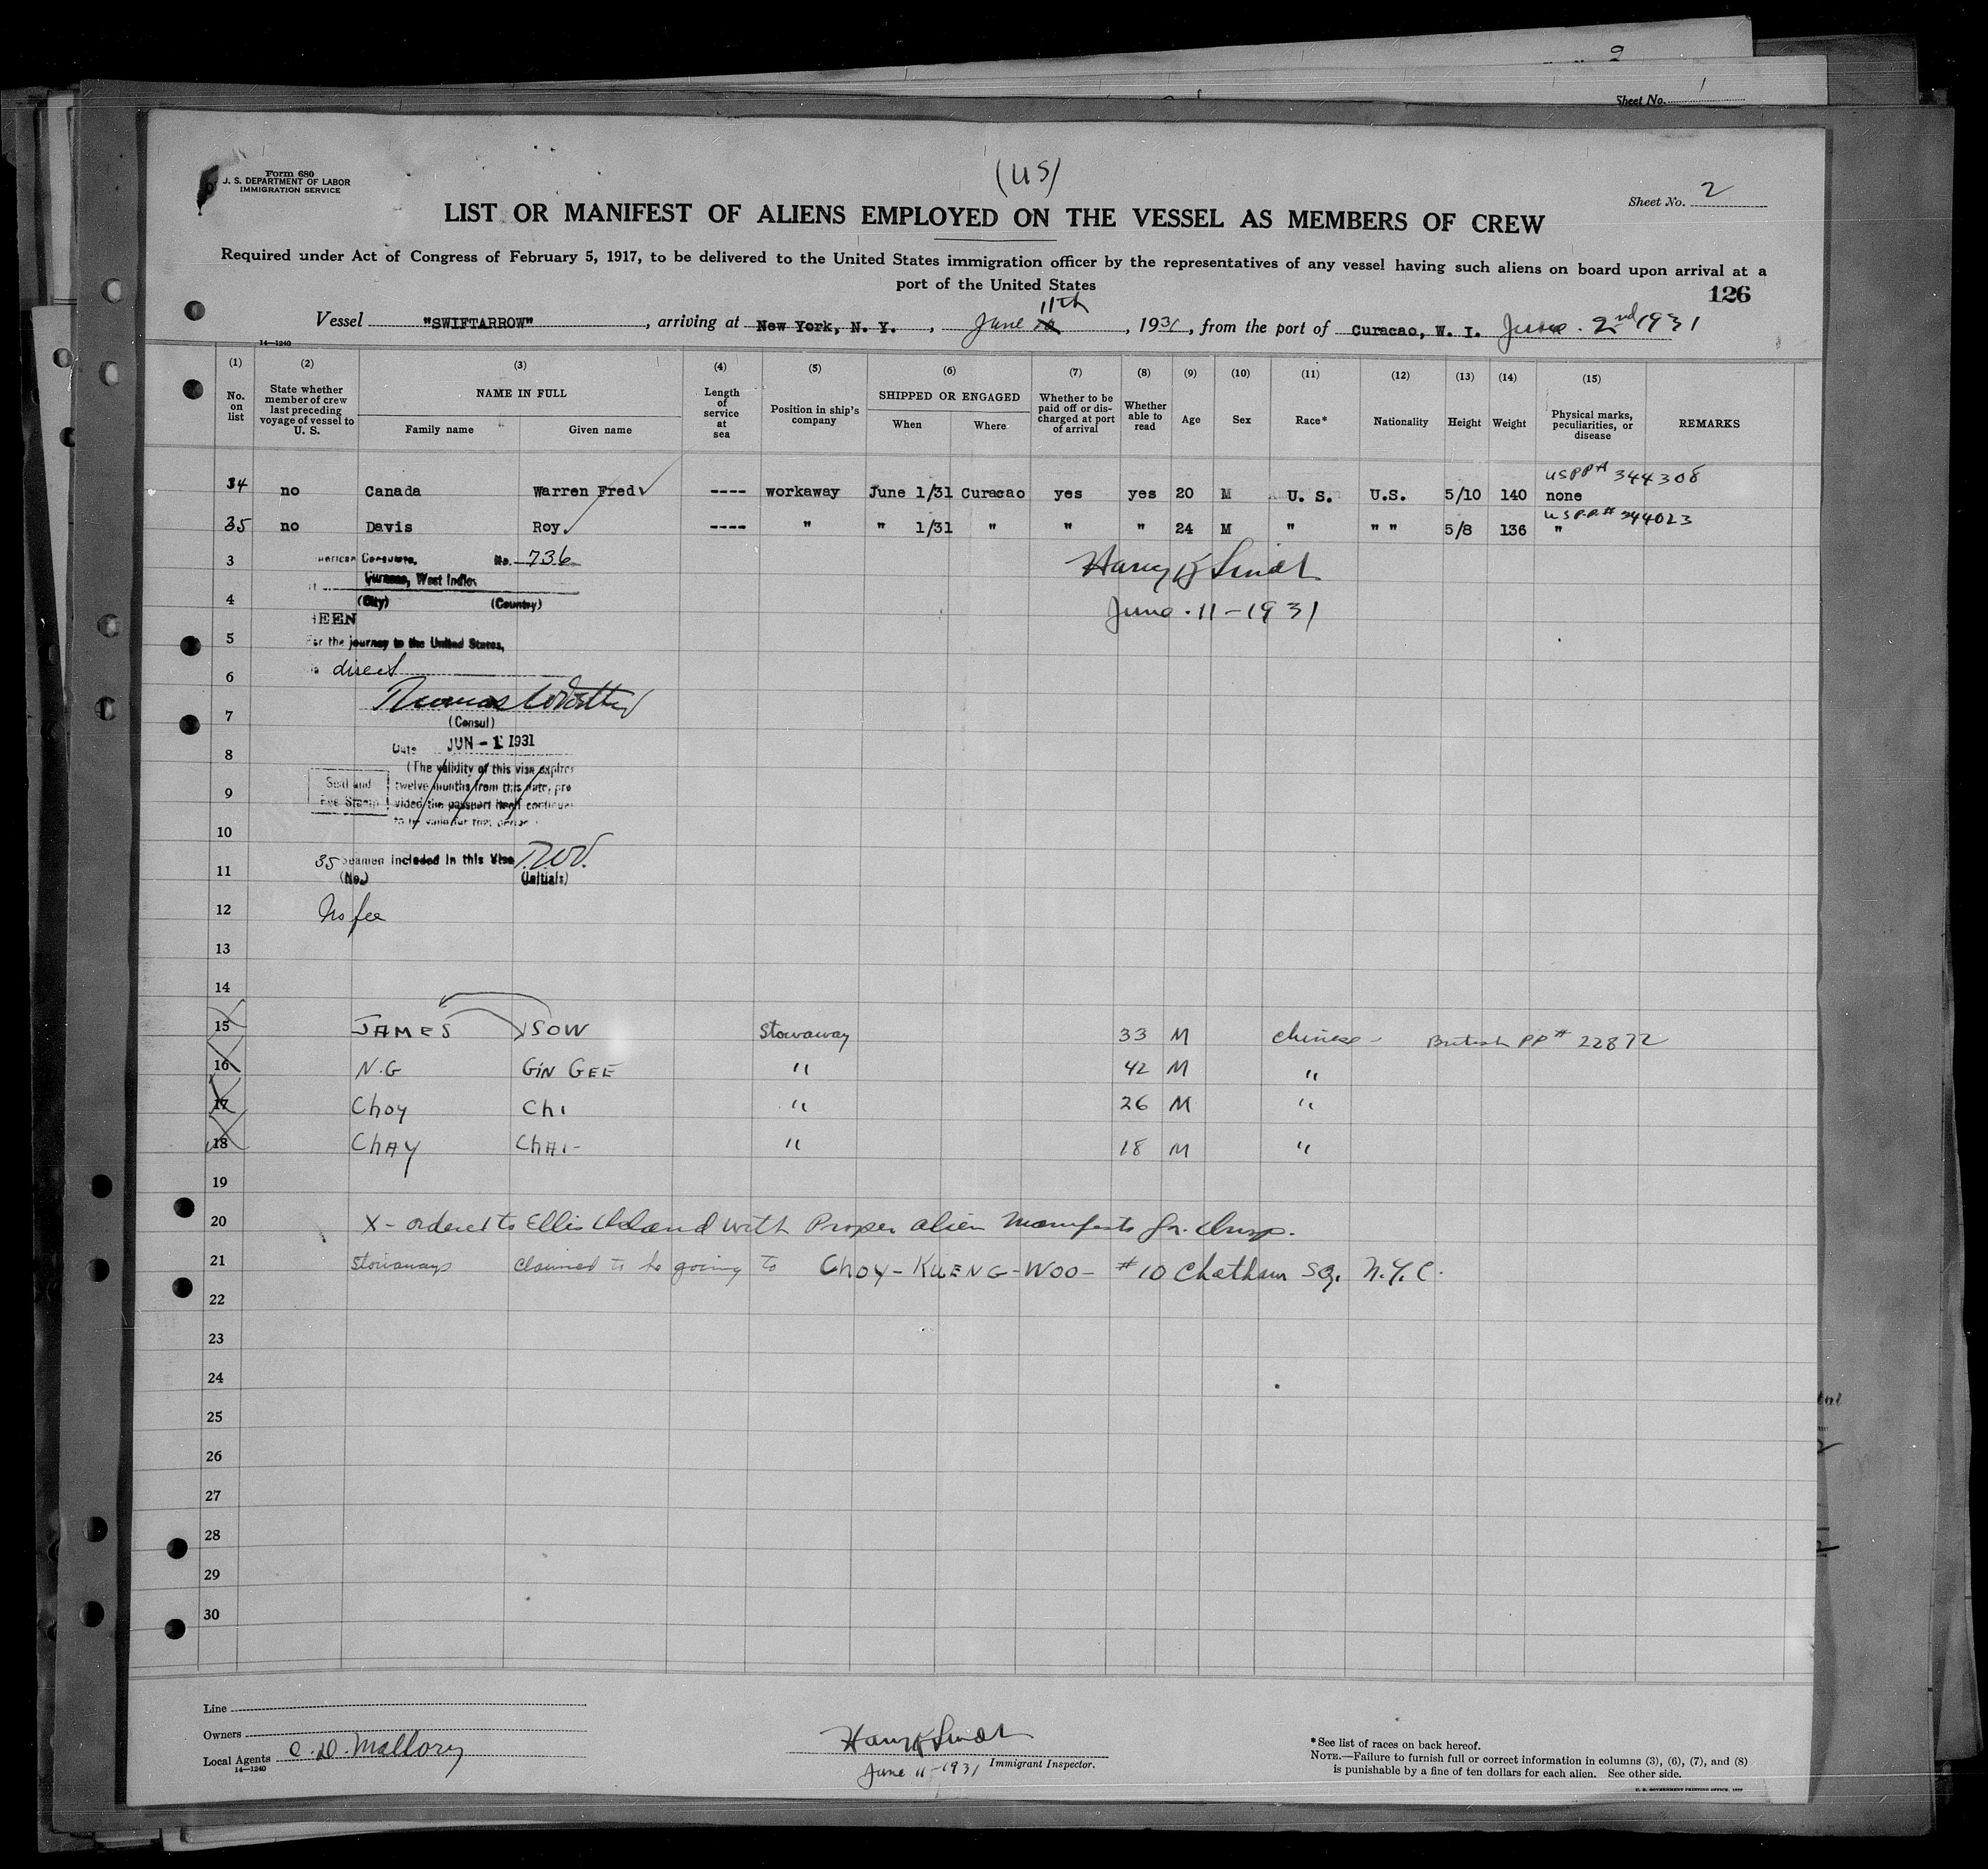 9
Sheet No. 1
Form 680
U. S. DEPARTMENT OF LABOR
IMMIGRATION SERVICE
(US)
Sheet No. 2
LIST OR MANIFEST OF ALIENS EMPLOYED ON THE VESSEL AS MEMBERS OF CREW
Required under Act of Congress of February 5, 1917, to be delivered to the United States immigration officer by the representatives of any vessel having such aliens on board upon arrival at a
port of the United States
126
11th
Vessel "SWIFTARROW", arriving at New York, N. Y., June, 1931, from the port of Curacao, W. I. June. 2nd 1931
14—1240
(1) (2) (3) (4) (5) (6) (7) (8) (9) (10) (11) (12) (13) (14) (15)
No. on list
State whether member of crew last preceding voyage of vessel to U. S.
NAME IN FULL
Family name Given name
Length of service at sea
Position in ship's company
SHIPPED OR ENGAGED
When Where
Whether to be paid off or discharged at port of arrival
Whether able to read
Age
Sex
Race*
Nationality
Height
Weight
Physical marks, peculiarities, or disease
REMARKS
USPP# 344308
34 no Canada Warren Fred ---- workaway June 1/31 Curacao yes yes 20 M U. S. U.S. 5/10 140 none
USP.P.# 344023
35 no Davis Roy ---- " " 1/31 " " " 24 M " " " 5/8 136 "
3 American Consulate, No. 736
Curacao, West Indies
4 (City) (Country)
SEEN
5 For the journey to the United States,
6 direct
7
(Consul)
Date JUN - 1 1931
8 (The validity of this visa expires
9 twelve months from this date, pro
vided the passport itself continues
to be valid for that period
Seal and
Fee Stamp
10
11 35 Seamen included in this Visa
(No.) (Initials)
12 No fee
Harry K Smith
June . 11 - 1931
13
14
15 JAMES SOW Stowaway 33 M Chinese - British PP# 22872
16 N.G GIN GEE " 42 M "
17 Choy Chi " 26 M "
18 CHAY CHAI- " 18 M "
19
20 X - ordered to Ellis Island with Proper alien Manifests for Insp.
21 Stowaways claimed to be going to CHOY-KUENG-WOO- #10 Chatham SQ. N.Y.C.
22
23
24
25
26
27
28
29
30
Line
Owners
Local Agents C. D. Mallory
14—1240
Harry K Smith
June 11-1931 Immigrant Inspector.
*See list of races on back hereof.
NOTE.—Failure to furnish full or correct information in columns (3), (6), (7), and (8)
is punishable by a fine of ten dollars for each alien. See other side.